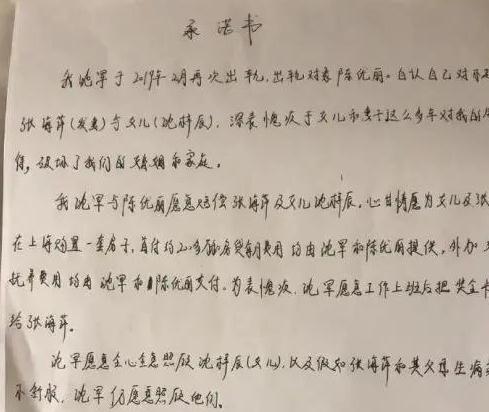 承诺书
我沈军于2019年2月再次出轨,出轨对象陈优丽。自认自己对不起
张海萍(发妻)与女儿(沈梓辰),深表愧疚于女儿和妻子这么多年对我的
任,破坏了我们的婚姻和家庭。
我沈军与陈优丽愿意赔偿张海萍及女儿沈梓辰,心甘情愿为女儿及张
在上海购置一套房子,首付约200多万房贷每月费用均由沈军和陈优丽提供,外加
抚养费用均由沈军和陈优丽支付。为表愧疚,沈军愿意工作上班后把奖金卡
给张海萍。
沈军愿意全心全意照顾沈梓辰(女儿),以及假如张海萍和其父母生病
不舒服,沈军仍愿意照顾他们。